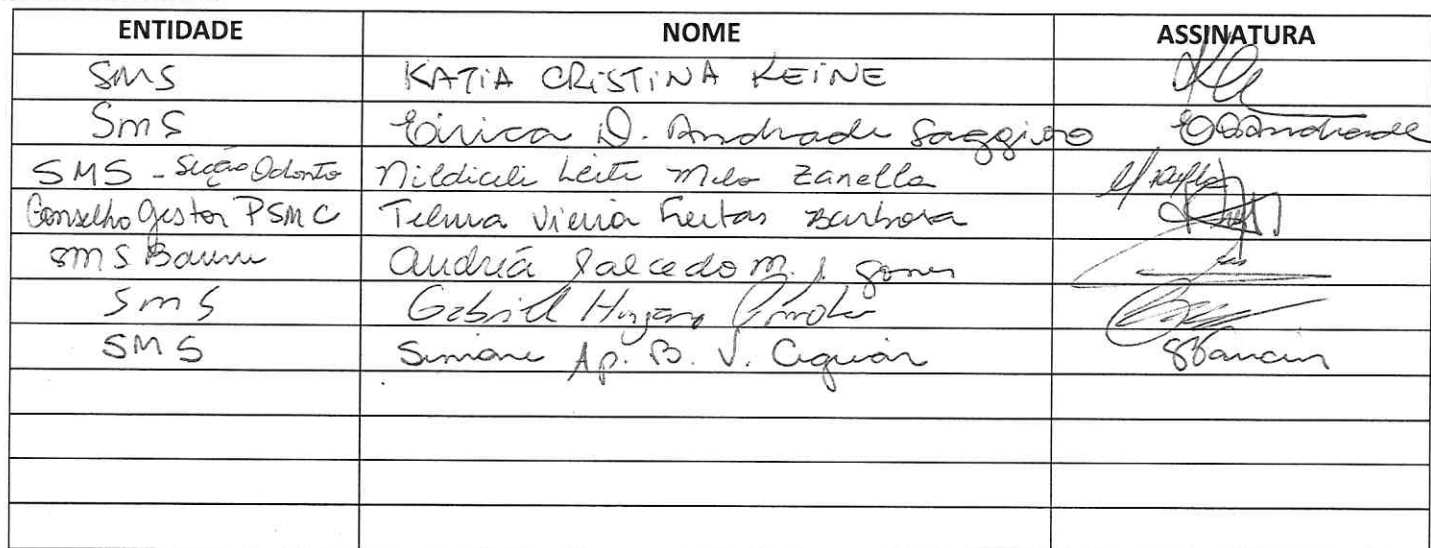 ENTIDADE NOME ASSINATURA
SMS KATIA CRISTINA KEINE
SmS Érica D. Andrade Saggioro EDAndrade
SMS - Seção Odonto Nildiceli Leite Melo Zanella
Conselho Gestor PSMC Telma Vieira Freitas Barbosa
SMS Bauru Andréa Salcedo M. J. Gomes
SmS Gabriel
SMS Simone Ap. B. V.